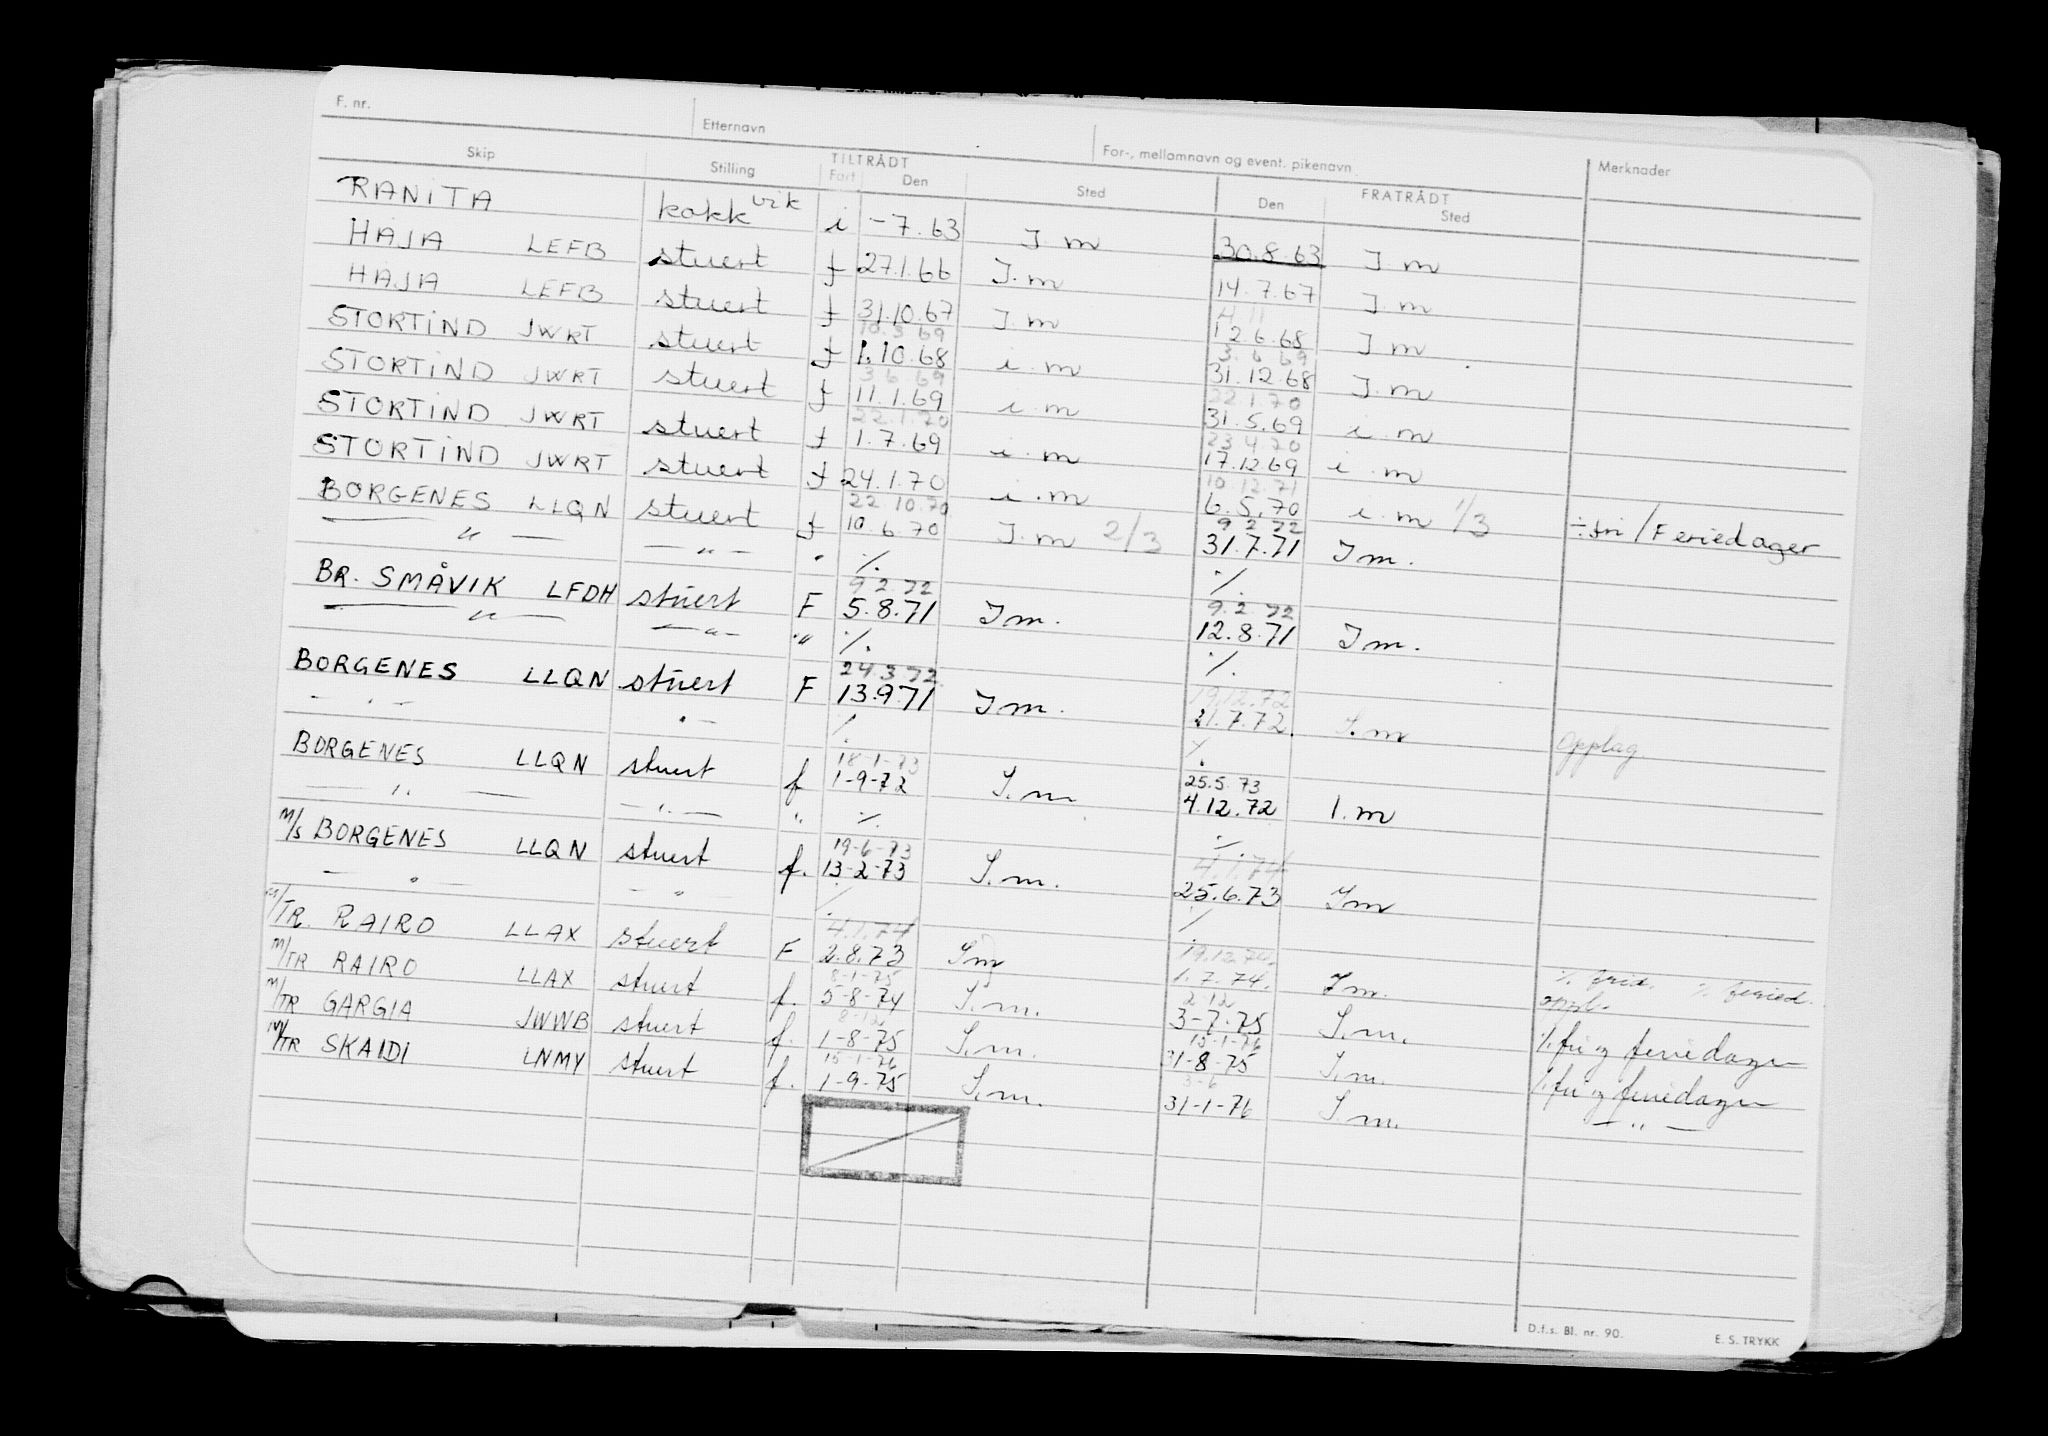 F. nr. Etternavn For-, mellomnavn og event. pikenavn Merknader
Skip Stilling TILTRÅDT FRATRÅDT
Fart Den Sted Den Sted
RANITA kokk vik i -7.63 I m 30.8.63 I m
HAJA LEFB stuert f 27.1.66 I.m 14.7.67 I m
HAJA LEFB stuert f 31.10.67 I.m 12.6.68 I m
10.3 69 3.6 69
STORTIND JWRT stuert f 1.10.68 i.m 31.12.68 I.m
3.6.69 22 1.70
STORTIND JWRT stuert f 11.1.69 i.m 31.5.69 i.m
22.1.70 23 4 70
STORTIND JWRT stuert f 1.7.69 i.m 17.12.69 i.m
10.12.71
STORTIND JWRT stuert f 24.1.70 i.m 6.5.70 i.m 1/3 ÷ fri / Feriedager
22.10.70 9 2 72
BORGENES LLQN stuert f 10.6.70 I.m 2/3 31.7.71 I m.
— " — — " — " ./. ./.
9 2 72 9.2 72
BR. SMÅVIK LFDH stuert F 5.8.71 I m. 12.8.71 I m.
— " — — " — " ./. ./.
24.3 72 19.12.72
BORGENES LLQN stuert F 13.9.71 I m. 21.7.72. I.m Opplag
— " — " — ./. ./.
18-1-73 25.5.73
BORGENES LLQN stuert f 1-9-72 I.m. 4.12.72 I.m
— " — — " — " ./. ./.
19-6-73 4.1.74
M/S BORGENES LLQN stuert f. 13-2-73 I.m. 25.6.73 I m
— " — — " ./. ./.
4.1.74 19.12.74
M/TR. RAIRO LLAX stuert F 2.8.73 I m 1.7.74. I m. ./. frid. ./. feried.
8-1-75 2.12 oppl.
M/TR RAIRO LLAX stuert f. 5-8-74 I.m. 3-7-75 I.m. ./. fri og feriedager
8-12 15-1-76
M/TR GARGIA JWWB stuert f. 1-8-75 I.m. 31-8-75 I.m. ./. fri og feriedager
15-1-76 3-6
M/TR SKAIDI LNMY stuert f. 1-9-75 I.m. 31-1-76 I.m. — " —
D.f.s. Bl. nr. 90. E. S. TRYKK